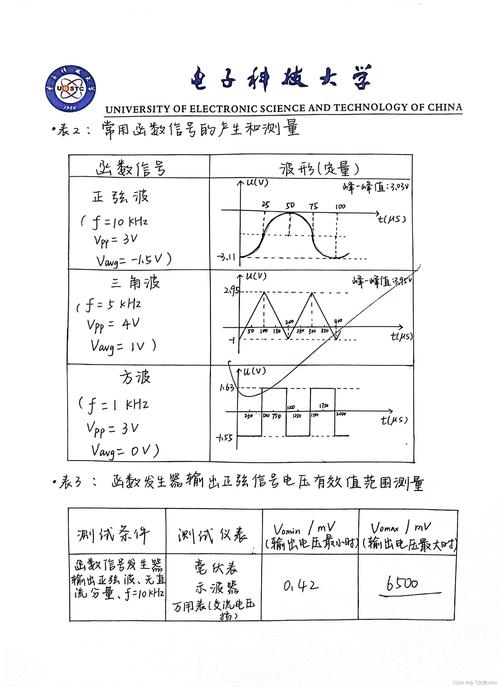 电子科技大学
UNIVERSITY OF ELECTRONIC SCIENCE AND TECHNOLOGY OF CHINA
UESTC
1956
·表2：常用函数信号的产生和测量
函数信号 波形(定量)
正弦波
(f=10KHz
Vpp=3V
Vavg=-1.5V)
u(V)
峰-峰值:3.03V
25 50 75 100
t(μS)
-3.11
三角波
(f=5KHz
Vpp=4V
Vavg=1V)
u(V)
峰-峰值:3.95V
2.95
50 100 150 200 250 300 350 400
t(μS)
-1
方波
(f=1KHz
Vpp=3V
Vavg=0V)
u(V)
1.63
250 500 750 1000 1250 1500 1750 2000
t(μS)
-1.55
·表3：函数发生器输出正弦信号电压有效值范围测量
测试条件 测试仪表 Vomin/mV (输出电压最小时) Vomax/mV (输出电压最大时)
函数信号发生器
输出正弦波、无直
流分量、f=10KHz
毫伏表
示波器
万用表(交流电压
挡)
0.42 6500